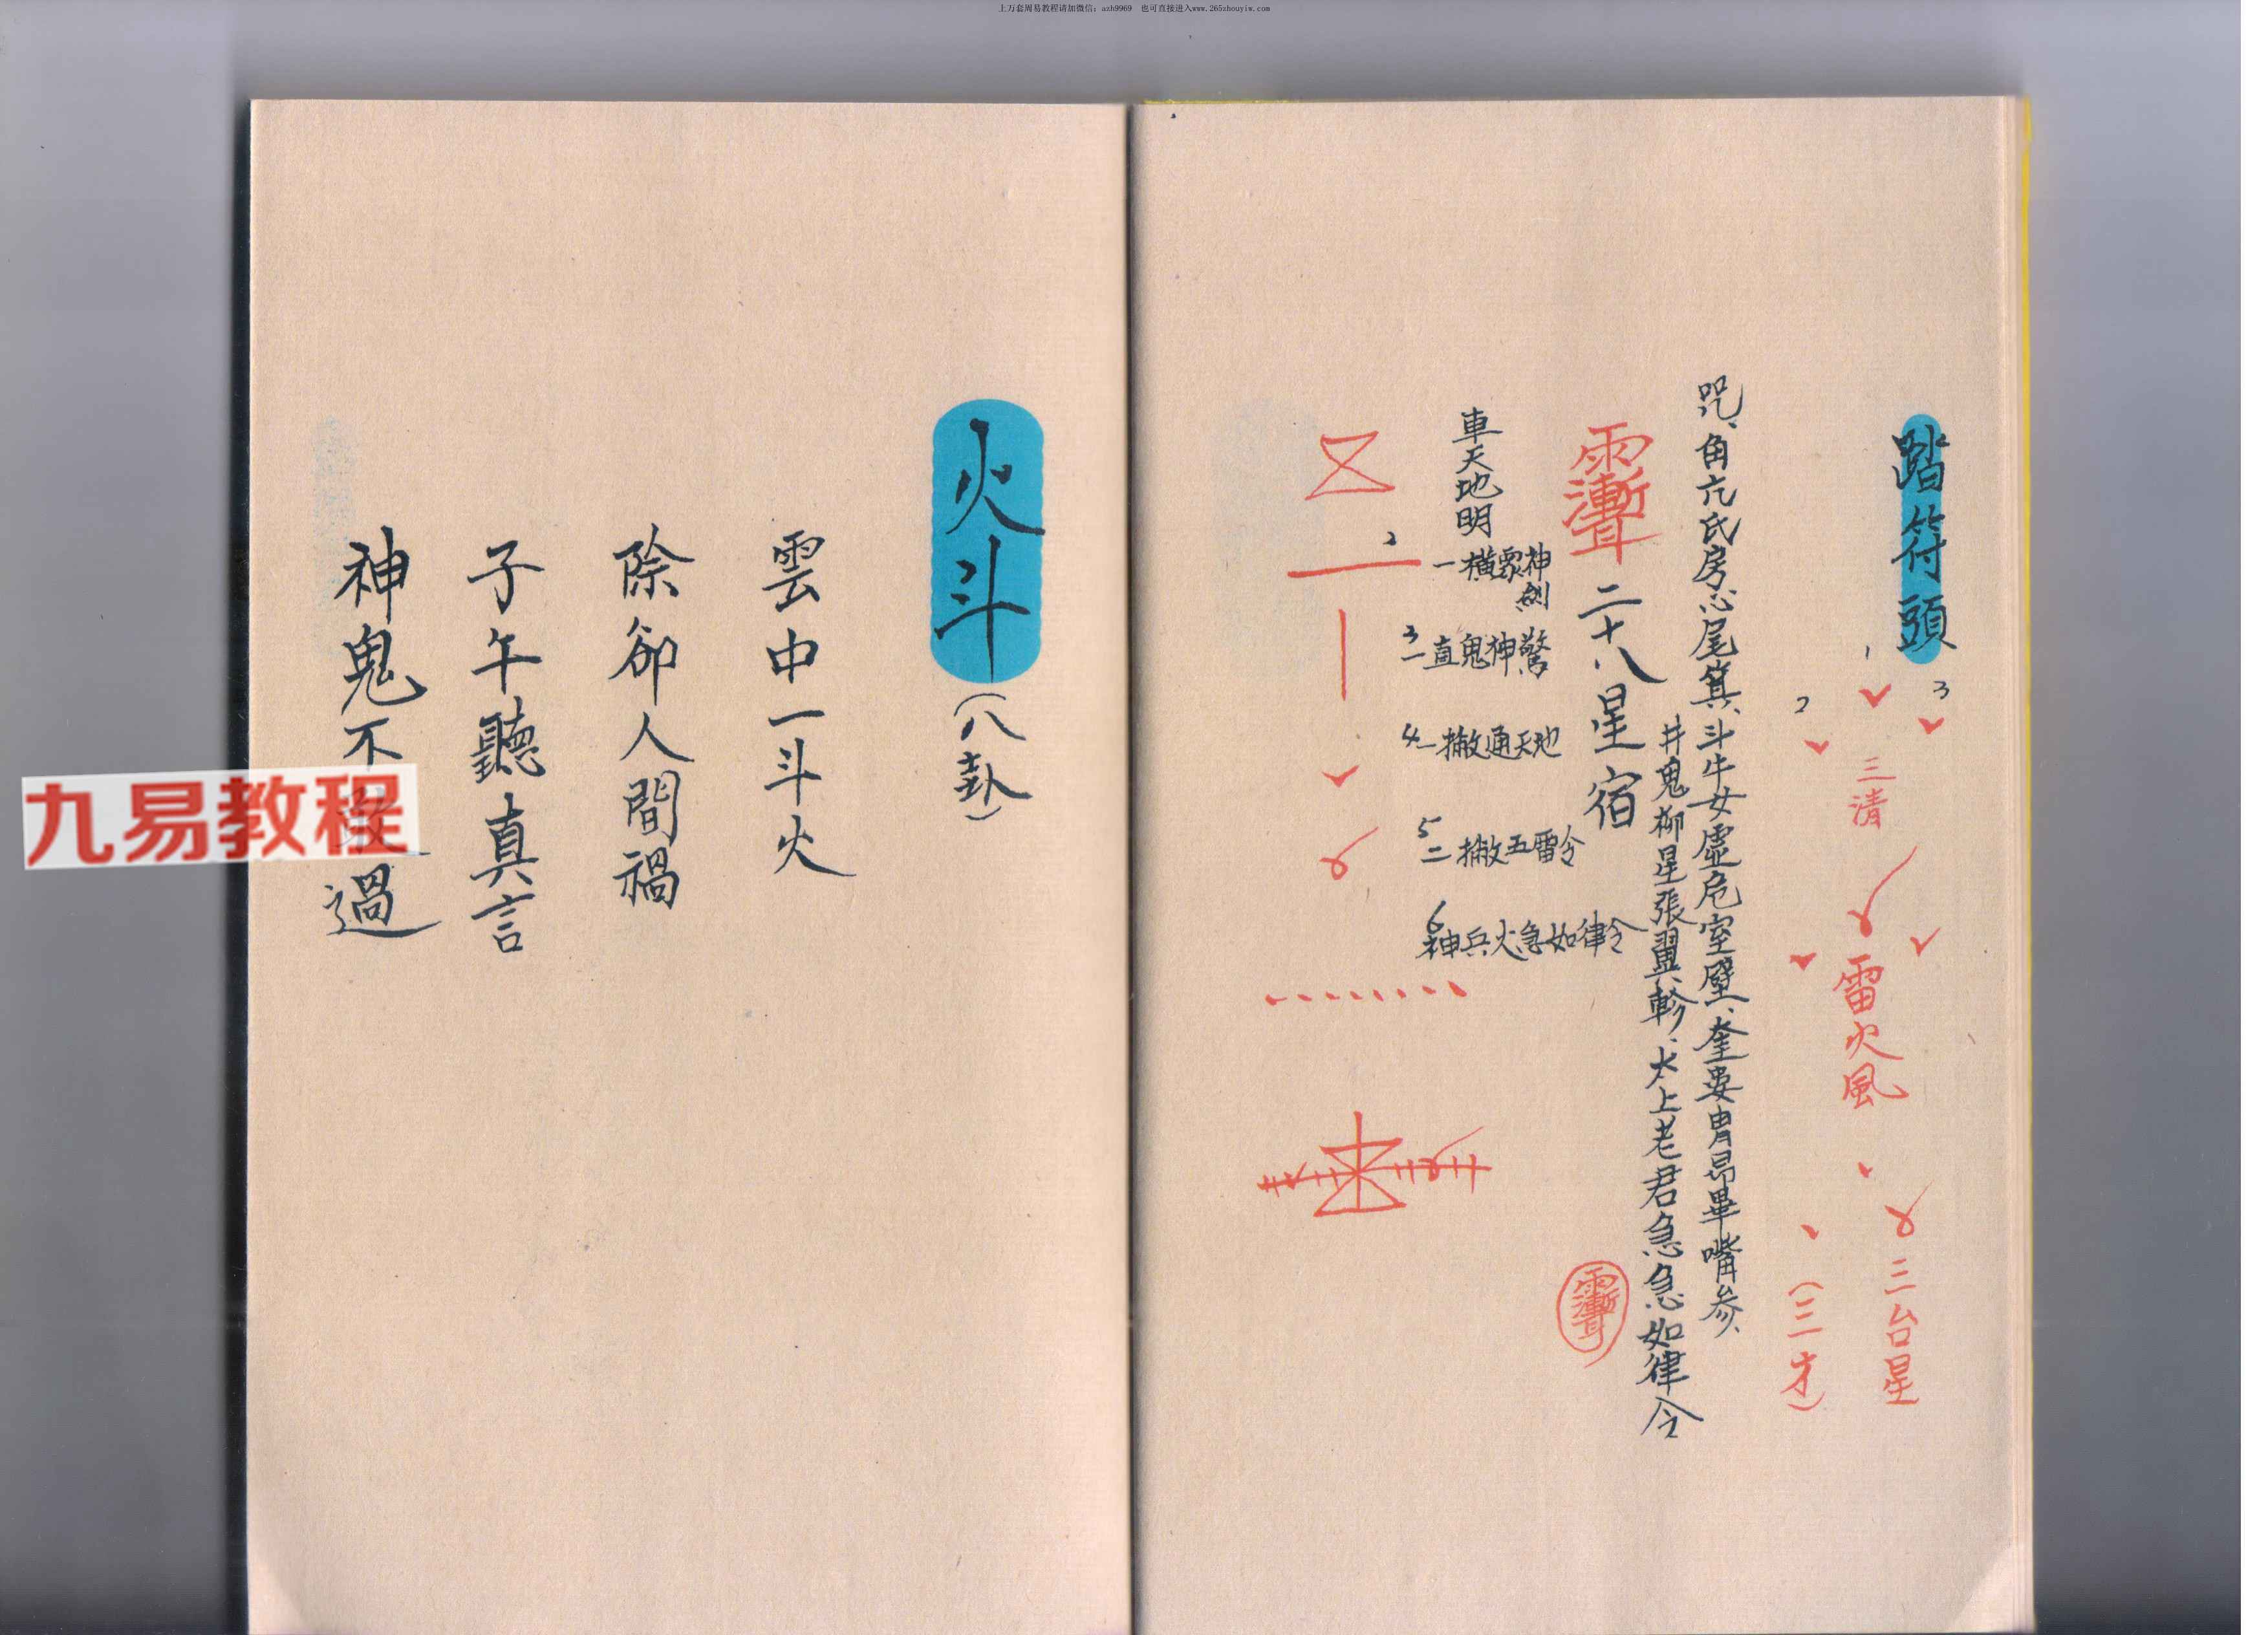 上万套周易教程请加微信：azh9969　也可直接进入www.265zhouyiw.com
踏符頭
1
2
3
三清
雷火風
三台星
（三才）
咒、角亢氏房心尾箕、斗牛女虛危室壁、奎婁胃昴畢嘴參、
井鬼柳星張翼軫、太上老君急急如律令
二十八星宿
車天地明
2
一橫眾神劍
3
一直鬼神驚
4
一撇通天地
5
二撇五雷令
6
神兵火急如律令
火斗（八卦）
雲中一斗火
除卻人間禍
子午聽真言
神鬼不過
九易教程